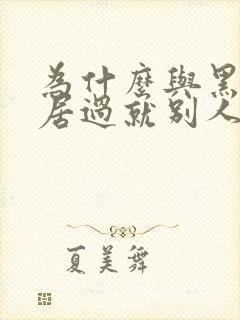 為什麼與黑
居過就別人
夏美舞